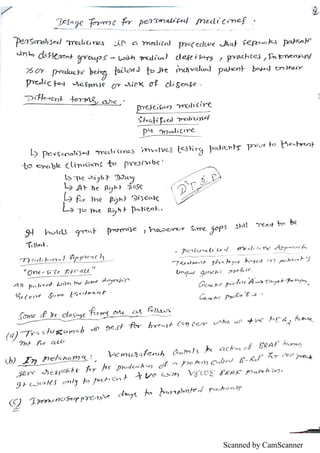 Dosage Forms for personalised medicines.
Personalised medicines is a medical procedure that seperates patients
into different groups - with medical descisions, practices, Interventions
& or products being tailored to the individual patient based on their
predicted response or risk of disease.
Different terms are:
precision medicine
Stratified medicine
P4 medicine
↳ personalised medicines involves testing patients prior to treatment
to enable clinicians to prescribe:
↳ The right Drug
↳ At the Right Dose
↳ For the Right Disease
↳ To the Right Patient.
It holds great promise, however some gaps still need to be
filled.
Traditional Approach
"One-size fits all"
All patient with the same diagnosis
Receive Same treatment
Personalised medicine Approach
Treatment strategy based on patient's
unique genetic profile.
Some of the dosage forms are as follows
(a) Trastuzumab is best for breast cancer who is +ve HER2
not for all.
(b) In melanoma: Vemurafenib the action of BRAF
for the production of a protein called B-Raf
It works only to patient +ve with V600E BRAF mutation.
(c) Immunosuppressive drugs to transplanted patients
Scanned by CamScanner